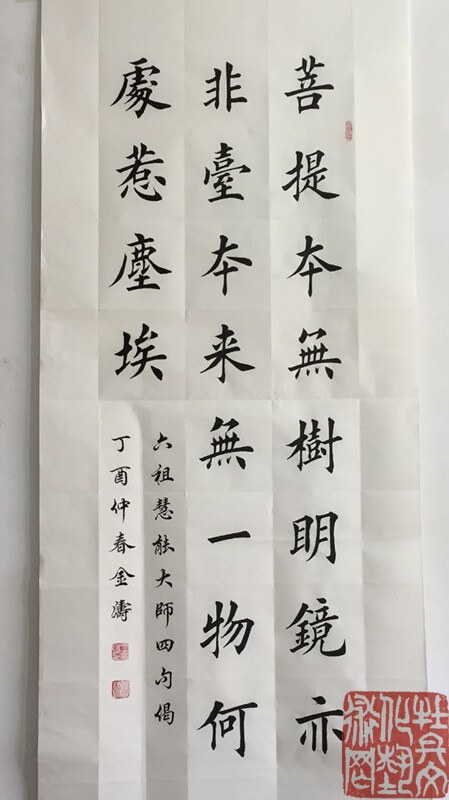 菩提本無樹明鏡亦
非臺本来無一物何
處惹塵埃
六祖慧能大師四句偈
丁酉仲春金濤